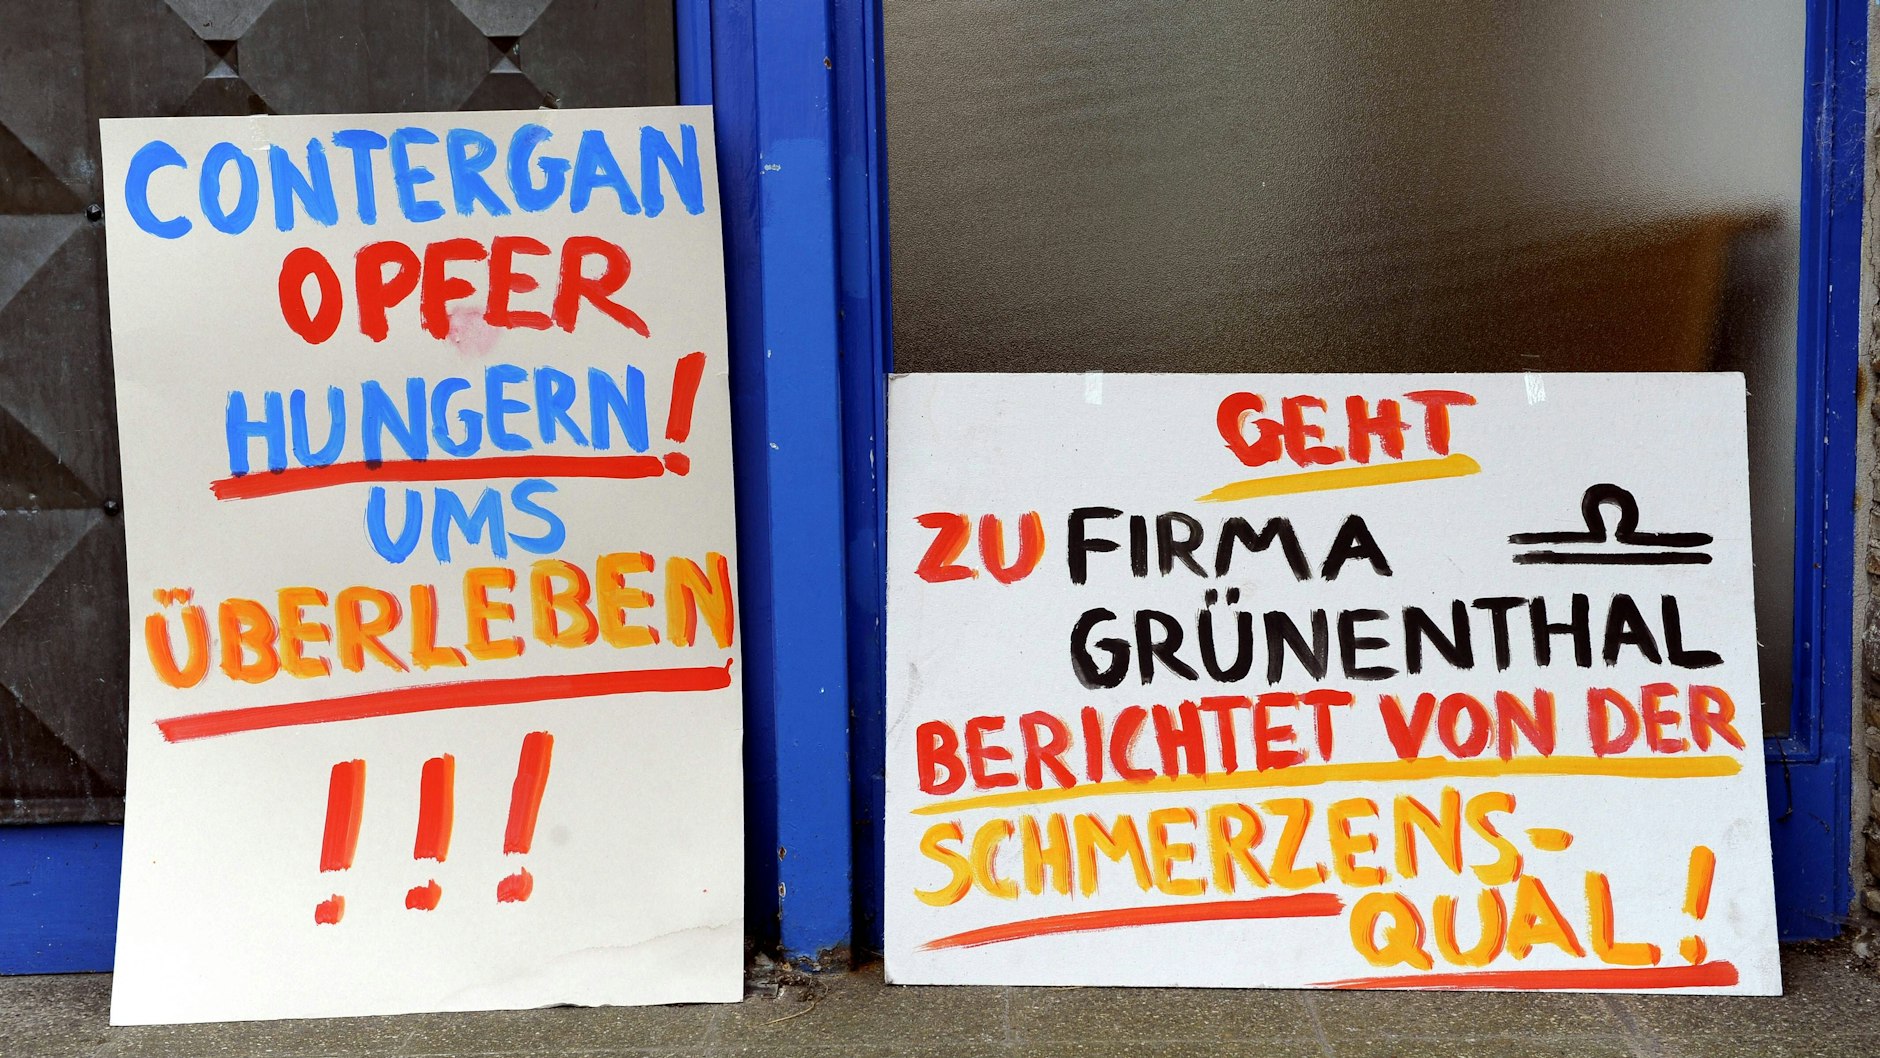 CONTERGAN
OPFER
HUNGERN!
UMS
ÜBERLEBEN
!!!
GEHT
ZU FIRMA
GRÜNENTHAL
BERICHTET VON DER
SCHMERZENS-
QUAL!